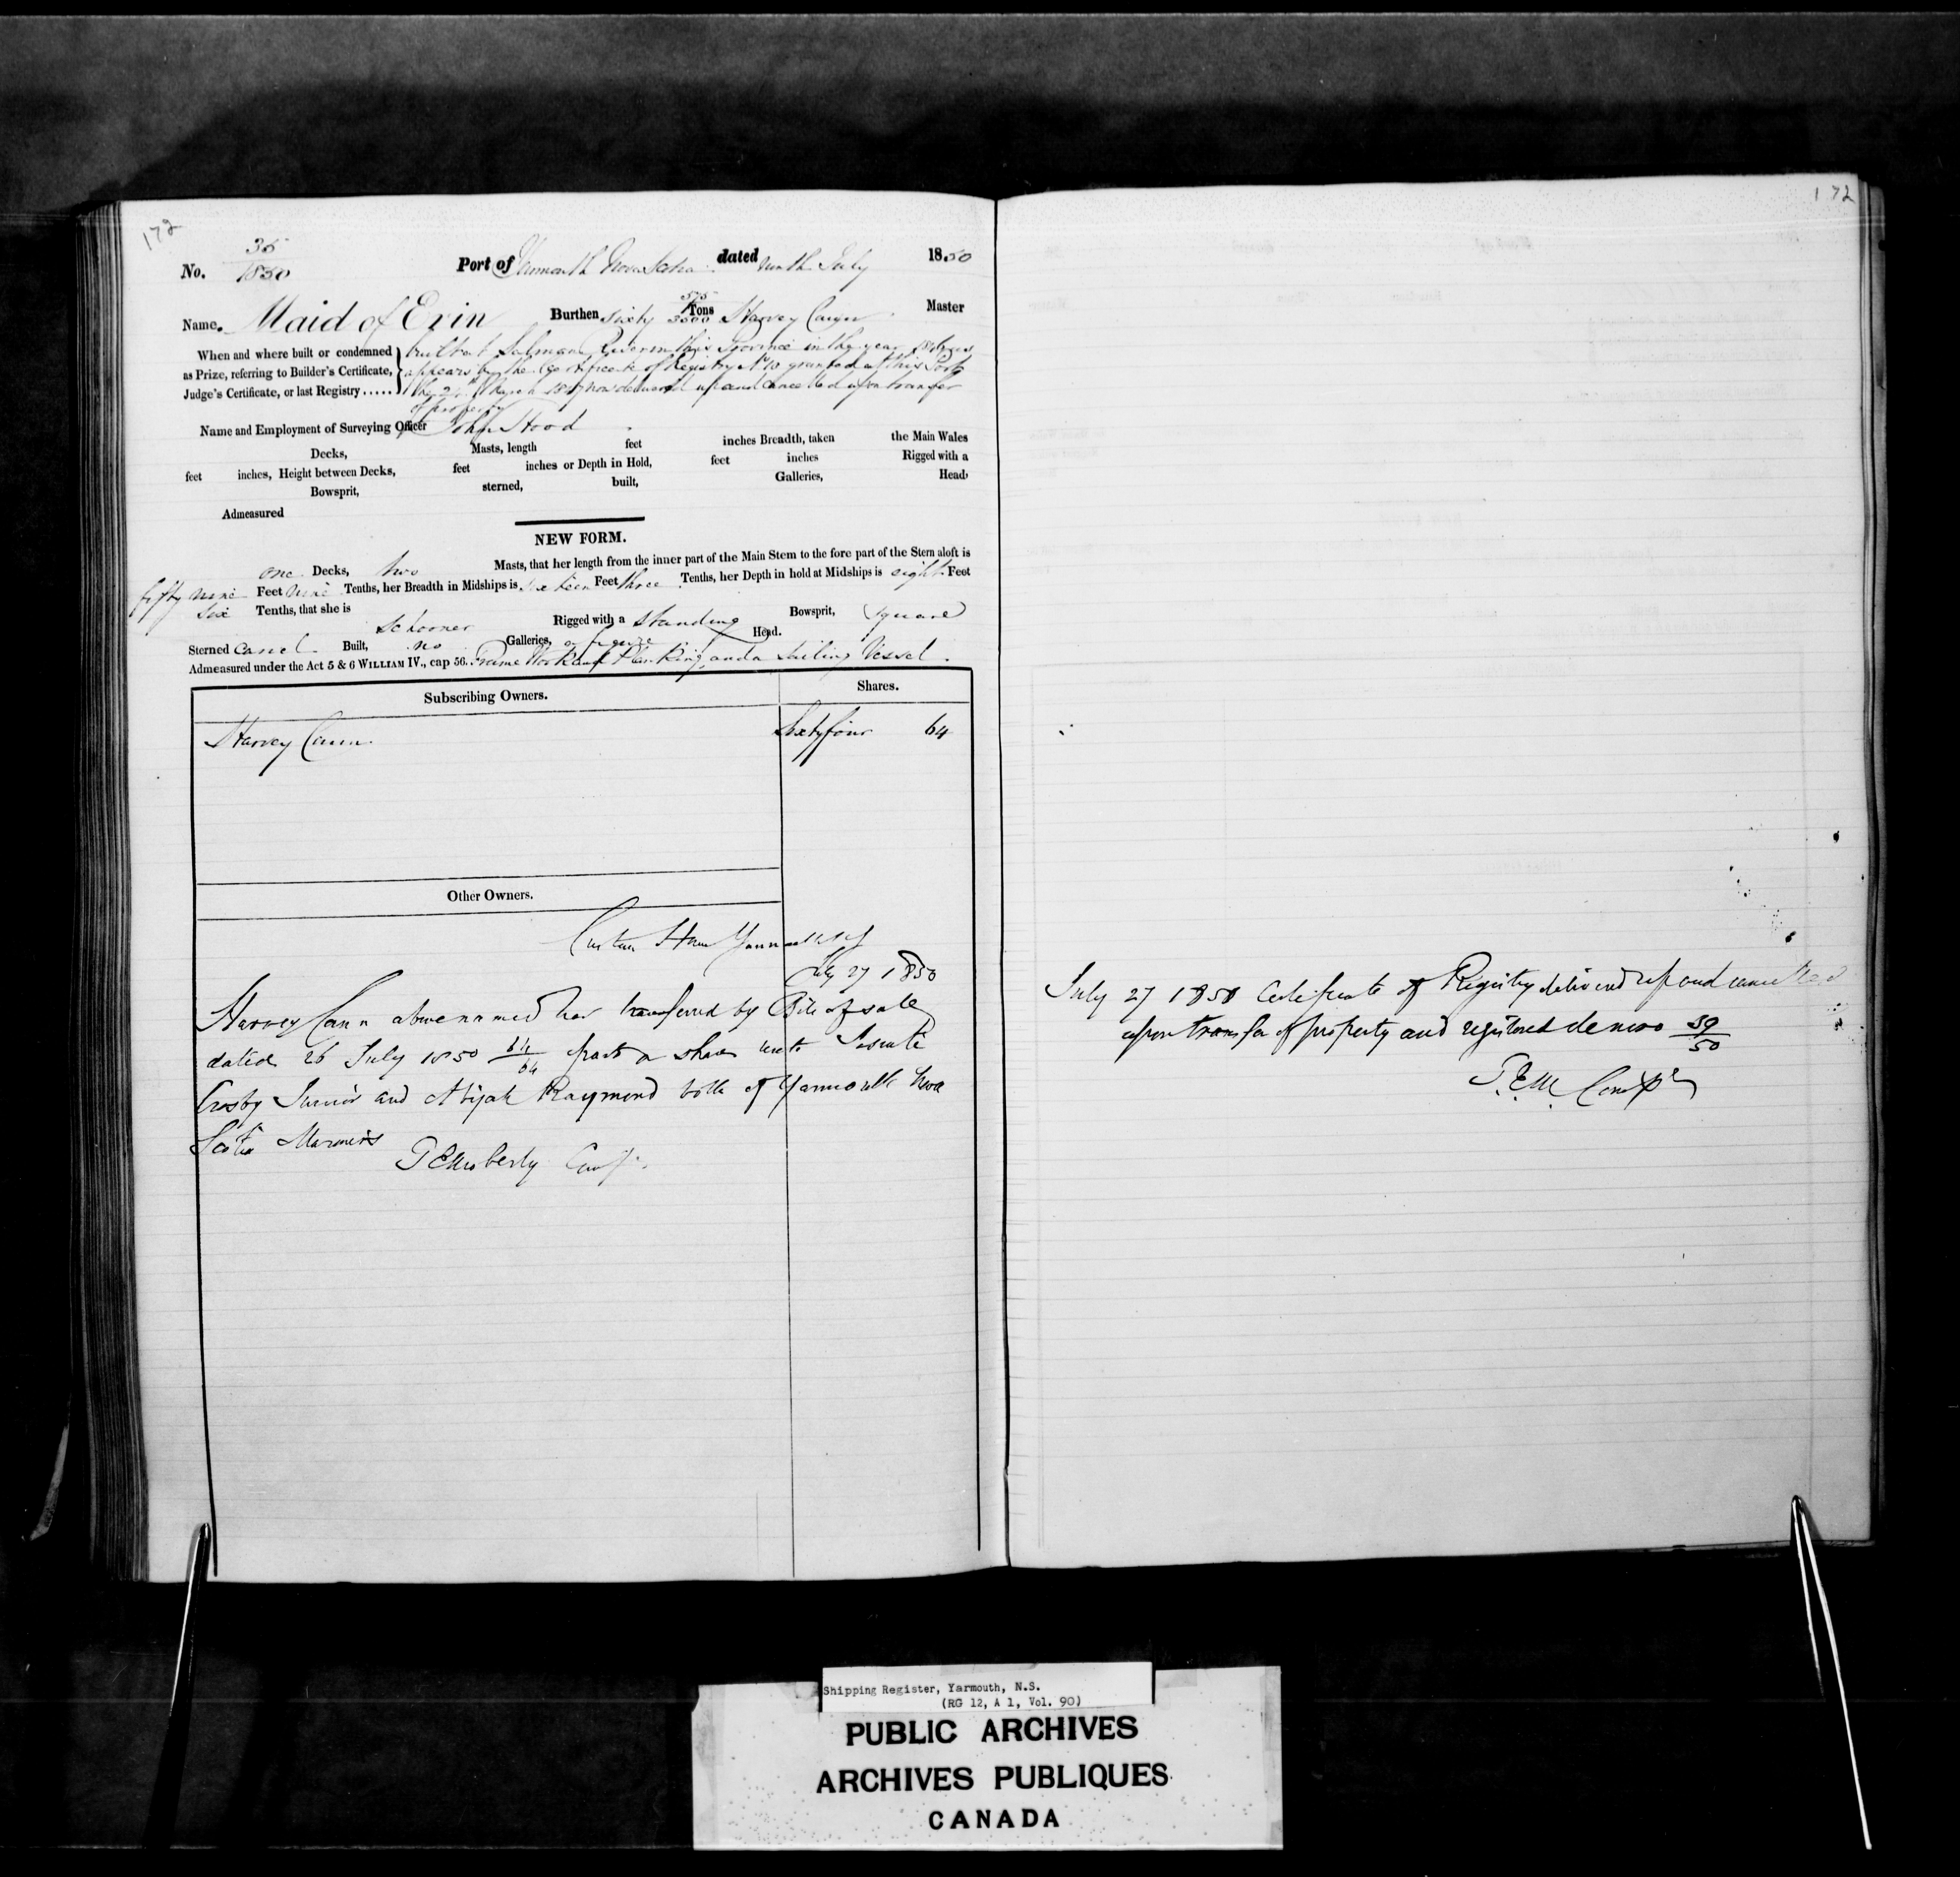 172
172
No. 35/1850 Port of Yarmouth Nova Scotia dated ninth July 1850
Name. Maid of Erin Burthen Sixty 575/3500 Tons Harvey Master
When and where built or condemned as Prize, referring to Builder's Certificate, Judge's Certificate, or last Registry.....
built at Salmon River in this Province in the year as
appears by the Certificate of Registry No 10 granted at this Port
the now delivered up and cancelled upon transfer
of property
Name and Employment of Surveying Officer John Hood
Decks, Masts, length feet inches Breadth, taken the Main Wales
feet inches, Height between Decks, feet inches or Depth in Hold, feet inches Rigged with a
Bowsprit, sterned, built, Galleries, Head,
Admeasured
NEW FORM.
one Decks, two Masts, that her length from the inner part of the Main Stem to the fore part of the Stern aloft is
fifty nine Feet nine Tenths, her Breadth in Midships is sixteen Feet three Tenths, her Depth in hold at Midships is eight Feet
six Tenths, that she is Schooner Rigged with a Standing Bowsprit, Square
Sterned Carvel Built, no Galleries, or figure Head.
Admeasured under the Act 5 & 6 WILLIAM IV., cap 56. Frame Work and Planking, and a Sailing Vessel.
Subscribing Owners. Shares.
Harvey Cann Sixty four 64
Other Owners.
Custom House Yarmouth NS
July 27 1850
Harvey Cann above named has transferred by Bill of sale
dated 26 July 1850 64/64 parts or shares unto
Crosby Junior and Abijah Raymond both of Yarmouth Nova
Scotia Mariners
TEMoberly Compr
July 27 1850 Certificate of Registry delivered up and cancelled
upon transfer of property and registered de novo 39/50
T.E.M. Compr
Shipping Register, Yarmouth, N.S.
(RG 12, A 1, Vol. 90)
PUBLIC ARCHIVES
ARCHIVES PUBLIQUES
CANADA